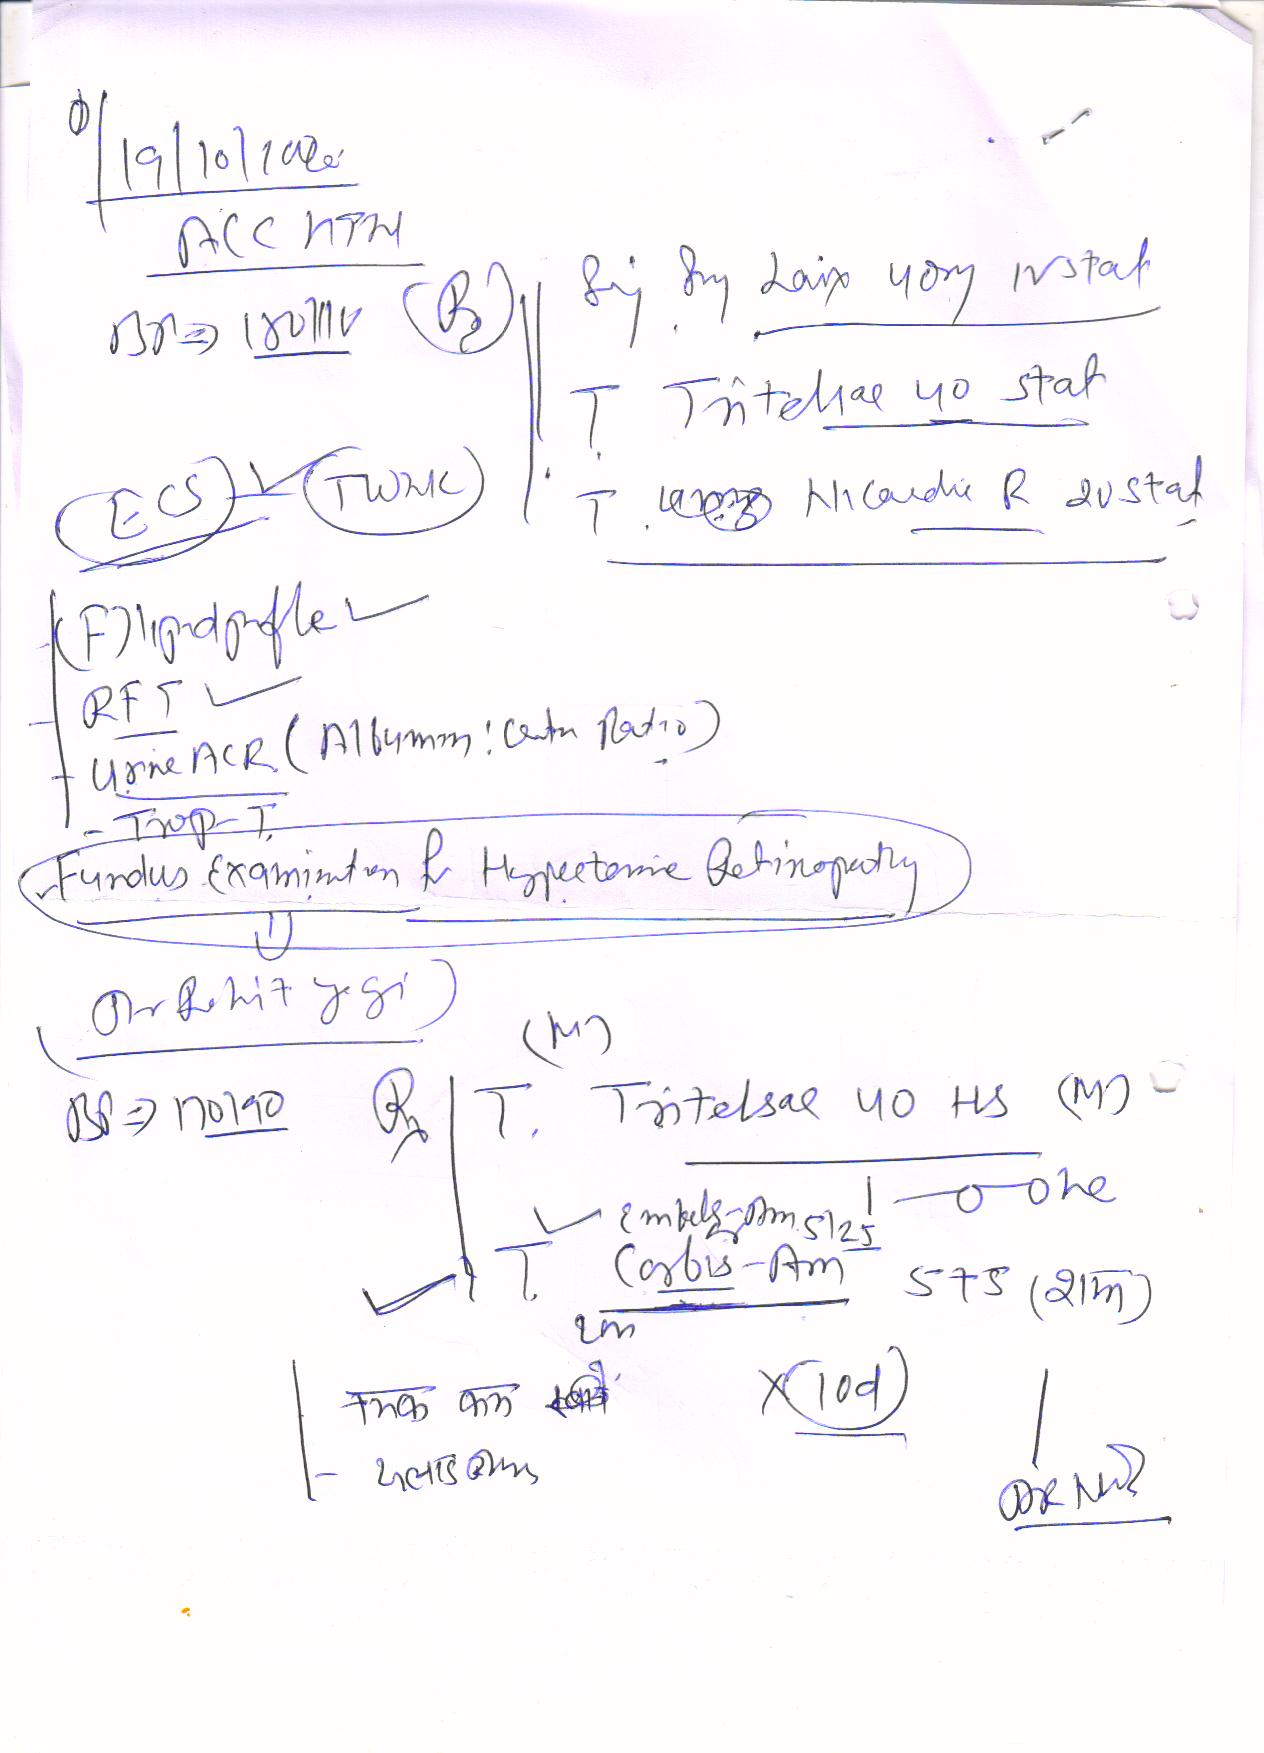 19/10/
ACC HTN
BP ⇒ 180/110 (Rx) Inj Lasix 40mg IV stat
T. Tritelsae 40 stat
T. Nicardia R 20 stat
ECG ✓ (TWNL)
(F) lipid profile ✓
- RFT ✓
- Urine ACR (Albumin: Ratio)
- Trop-T.
Fundus Examination for Hypertensive Retinopathy
(Dr Rohit yogi)
(M)
BP ⇒ 170/90 Rx T. Tritelsae 40 HS (M)
Embeta-Am 5/25 1—0—0
T. Corbis-Am 5+5 (शाम)
नमक कम X (10d)
- सलाद
DR